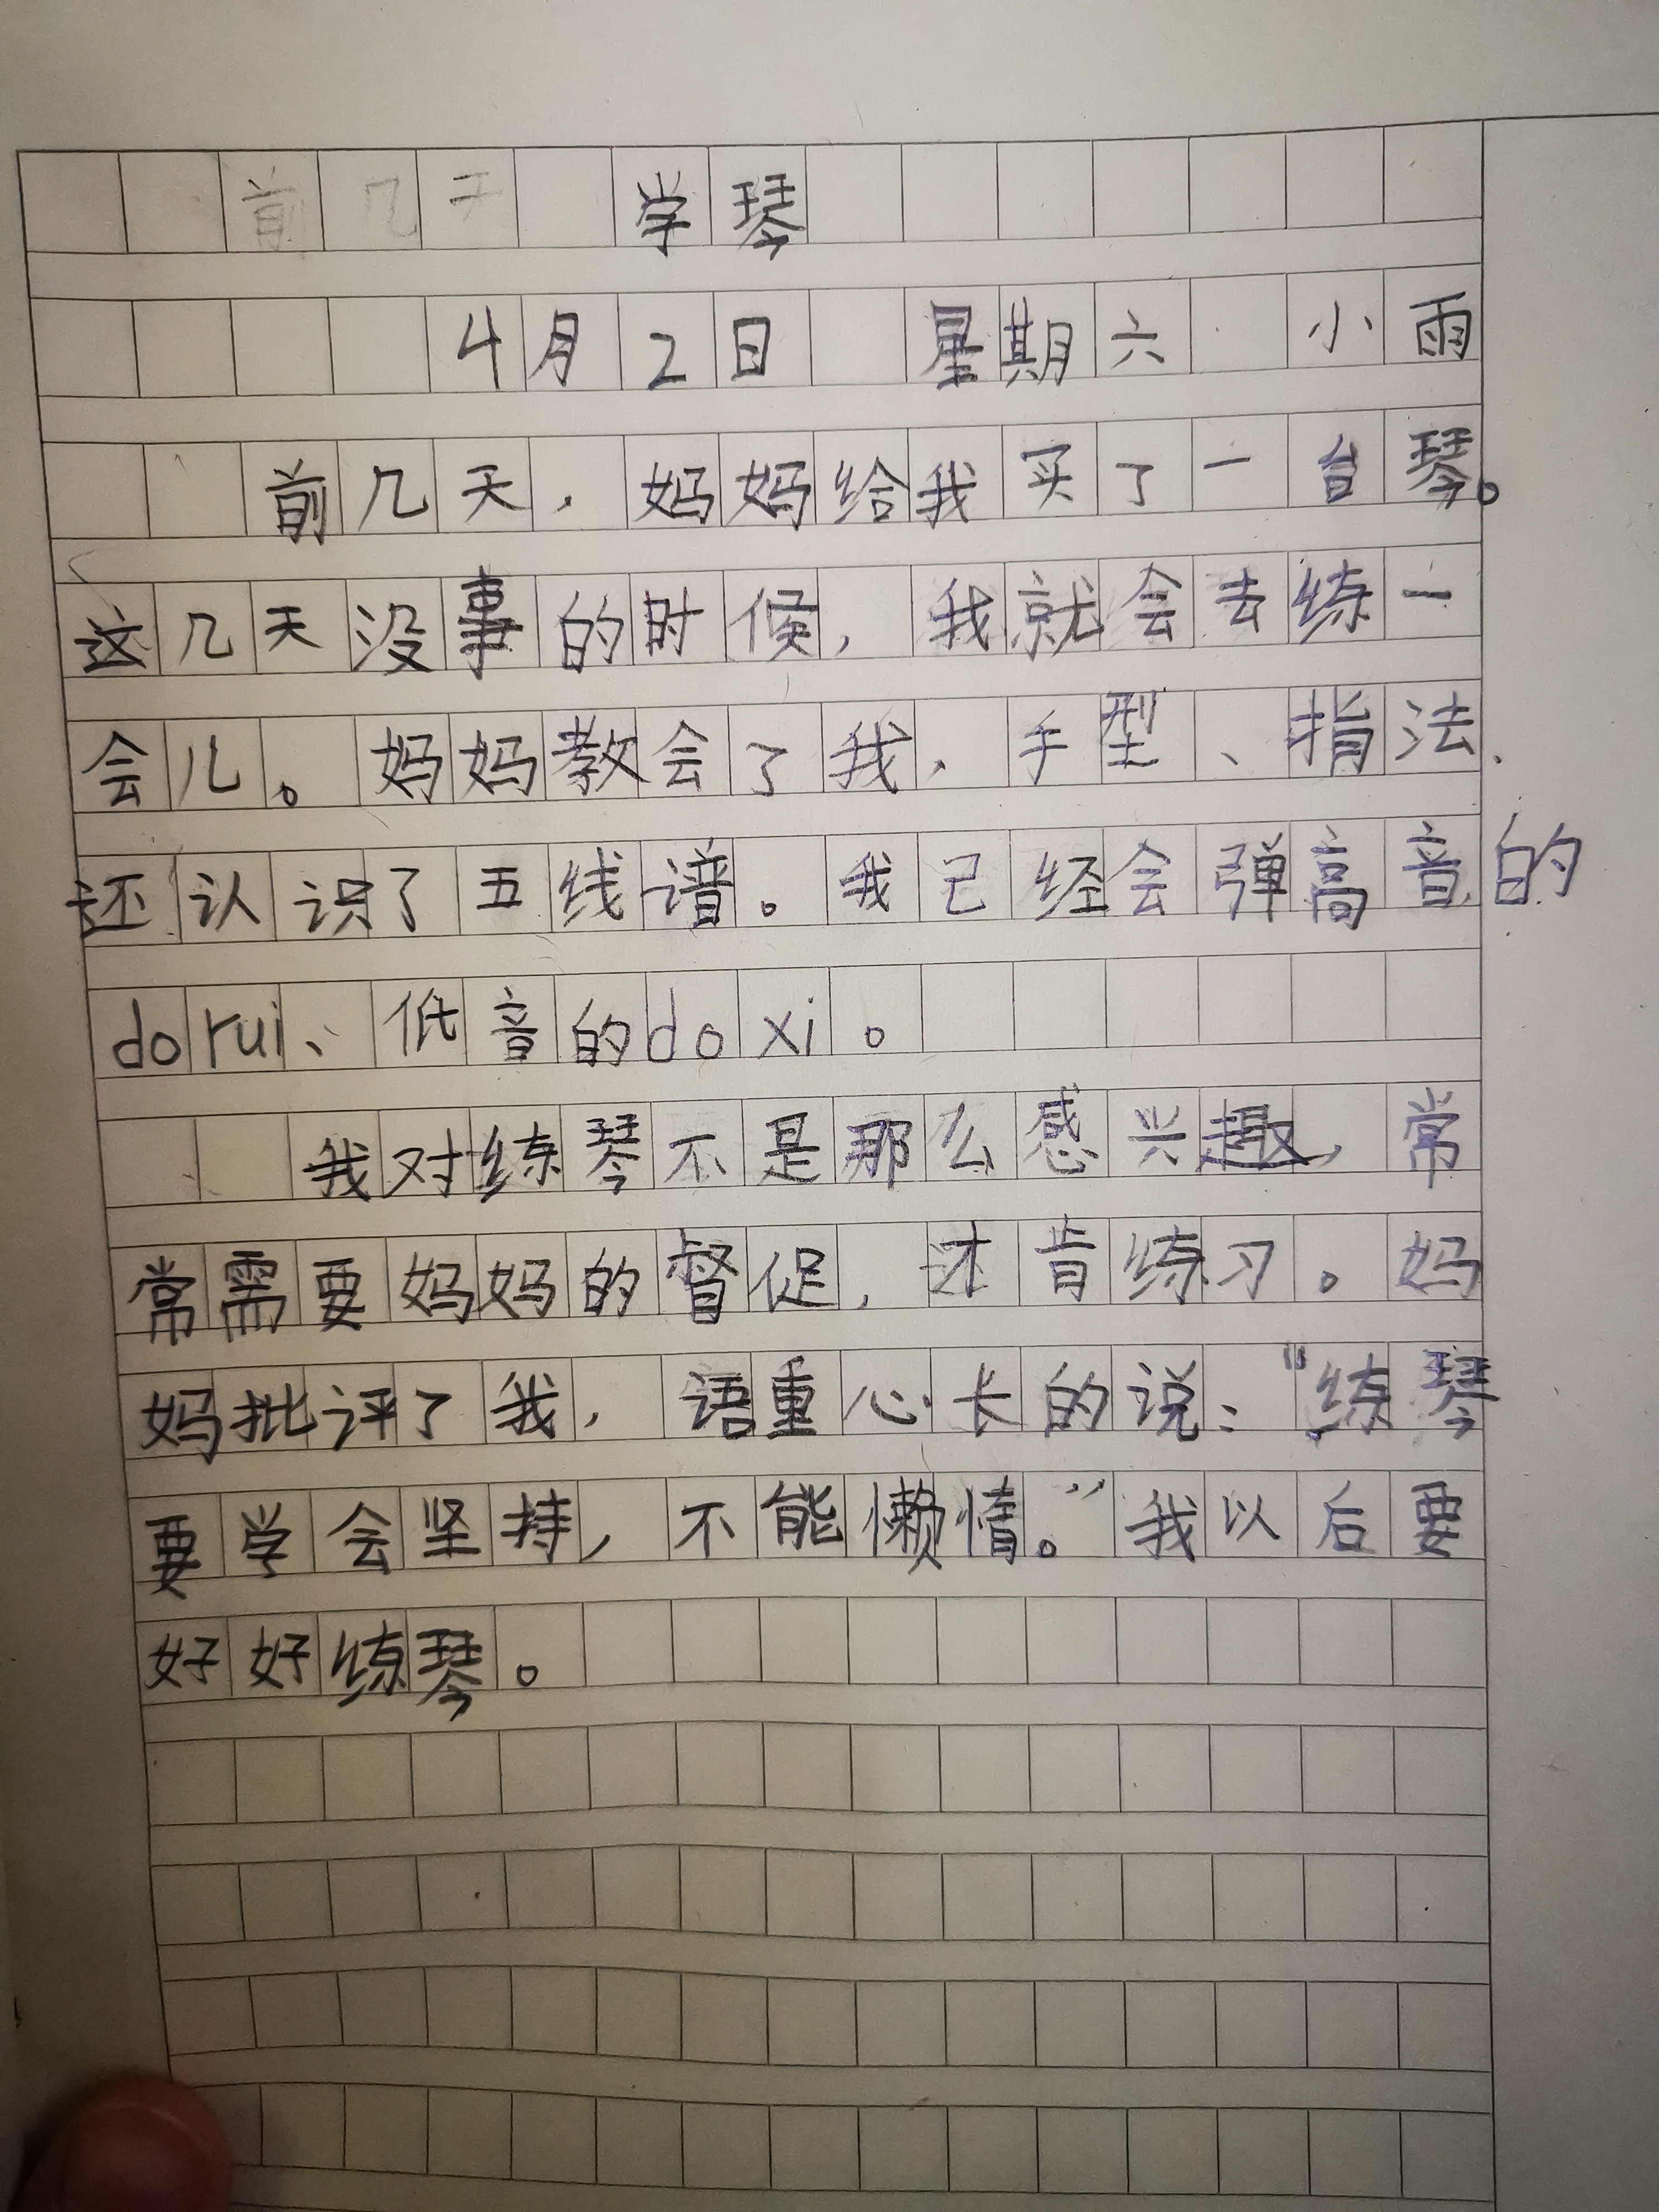 前几天 学琴
4月2日 星期六 小雨
前几天，妈妈给我买了一台琴。
这几天没事的时候，我就会去练一
会儿。妈妈教会了我，手型、指法、
还认识了五线谱。我已经会弹高音的
do rui、低音的do xi。
我对练琴不是那么感兴趣，常
常需要妈妈的督促，还肯练习。妈
妈批评了我，语重心长的说：“练琴
要学会坚持，不能懒惰。”我以后要
好好练琴。